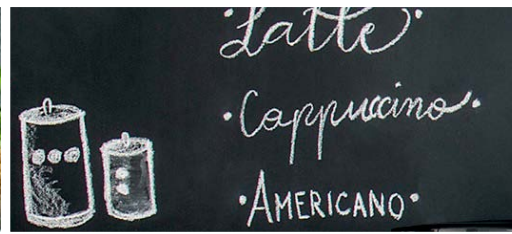 ·Latte·
·Cappuccino·
·AMERICANO·